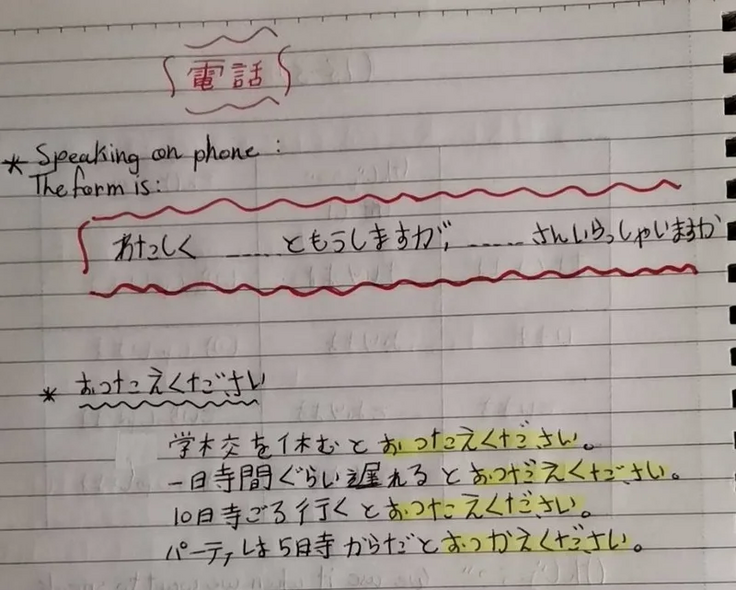 電話
* Speaking on phone :
The form is:
わたしく ...... ともうしますが、...... さんいらっしゃいますか
* おつたえください
学校を休むとおつたえください。
一時間ぐらい遅れるとおつだえください。
10時ごろ行くとおつたえください。
パーティは5時からだとおつかえください。